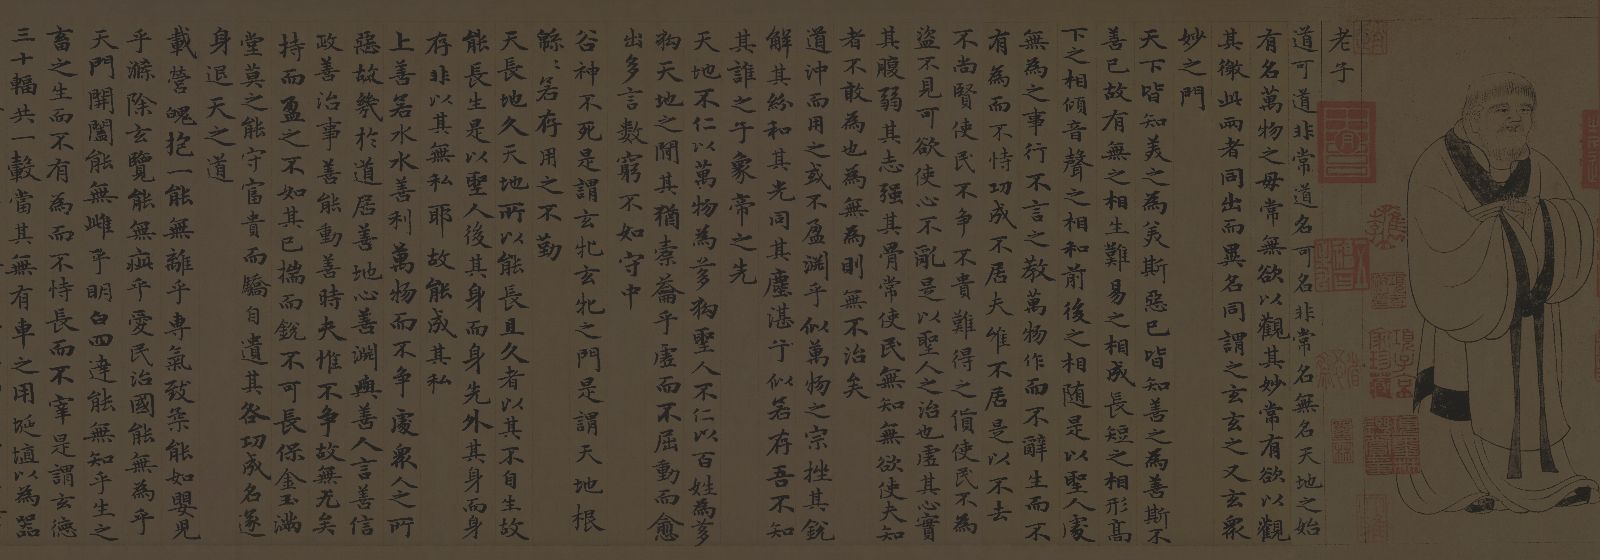 老子
道可道非常道名可名非常名無名天地之始
有名萬物之母常無欲以觀其妙常有欲以觀
其徼此兩者同出而異名同謂之玄玄之又玄眾
妙之門
天下皆知美之為美斯惡已皆知善之為善斯不
善已故有無之相生難易之相成長短之相形高
下之相傾音聲之相和前後之相随是以聖人處
無為之事行不言之教萬物作而不辭生而不
有為而不恃功成不居夫唯不居是以不去
不尚賢使民不争不貴難得之貨使民不為
盜不見可欲使心不亂是以聖人之治也虛其心實
其腹弱其志强其骨常使民無知無欲使夫知
者不敢為也為無為則無不治矣
道沖而用之或不盈淵乎似萬物之宗挫其銳
解其紛和其光同其塵湛乎似若存吾不知
其誰之子象帝之先
天地不仁以萬物為芻狗聖人不仁以百姓為芻
狗天地之間其猶橐籥乎虛而不屈動而愈
出多言數窮不如守中
谷神不死是謂玄牝玄牝之門是謂天地根
緜〻若存用之不勤
天長地久天地所以能長且久者以其不自生故
能長生是以聖人後其身而身先外其身而身
存非以其無私耶故能成其私
上善若水水善利萬物而不争處眾人之所
惡故幾於道居善地心善淵與善人言善信
政善治事善能動善時夫惟不争故無尤矣
持而盈之不如其已揣而銳不可長保金玉滿
堂莫之能守富貴而驕自遺其咎功成名遂
身退天之道
載營魄抱一能無離乎專氣致柔能如嬰兒
乎滌除玄覽能無疵乎愛民治國能無為乎
天門開闔能無雌乎明白四達能無知乎生之
畜之生而不有為而不恃長而不宰是謂玄德
三十輻共一轂當其無有車之用埏埴以為器